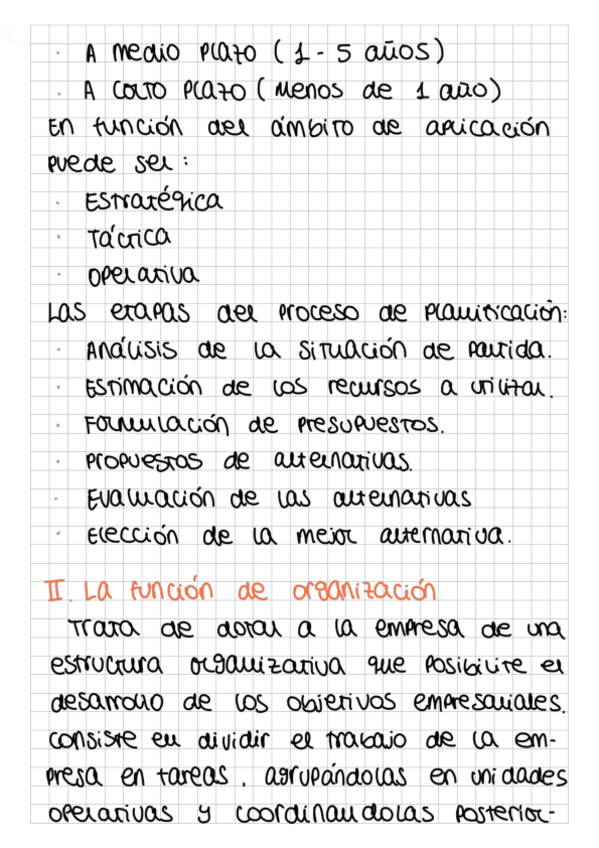 · A medio plazo (1 - 5 años)
· A corto plazo (menos de 1 año)
En función del ámbito de aplicación
puede ser:
· Estratégica
· Táctica
· Operativa
Las etapas del proceso de planificación:
· Análisis de la situación de partida.
· Estimación de los recursos a utilizar.
· Formulación de presupuestos.
· Propuestos de alternativas.
· Evaluación de las alternativas
· Elección de la mejor alternativa.
II. La función de organización
Trata de dotar a la empresa de una
estructura organizativa que posibilite el
desarrollo de los objetivos empresariales.
Consiste en dividir el trabajo de la em-
presa en tareas, agrupándolas en unidades
operativas y coordinandolas posterior-